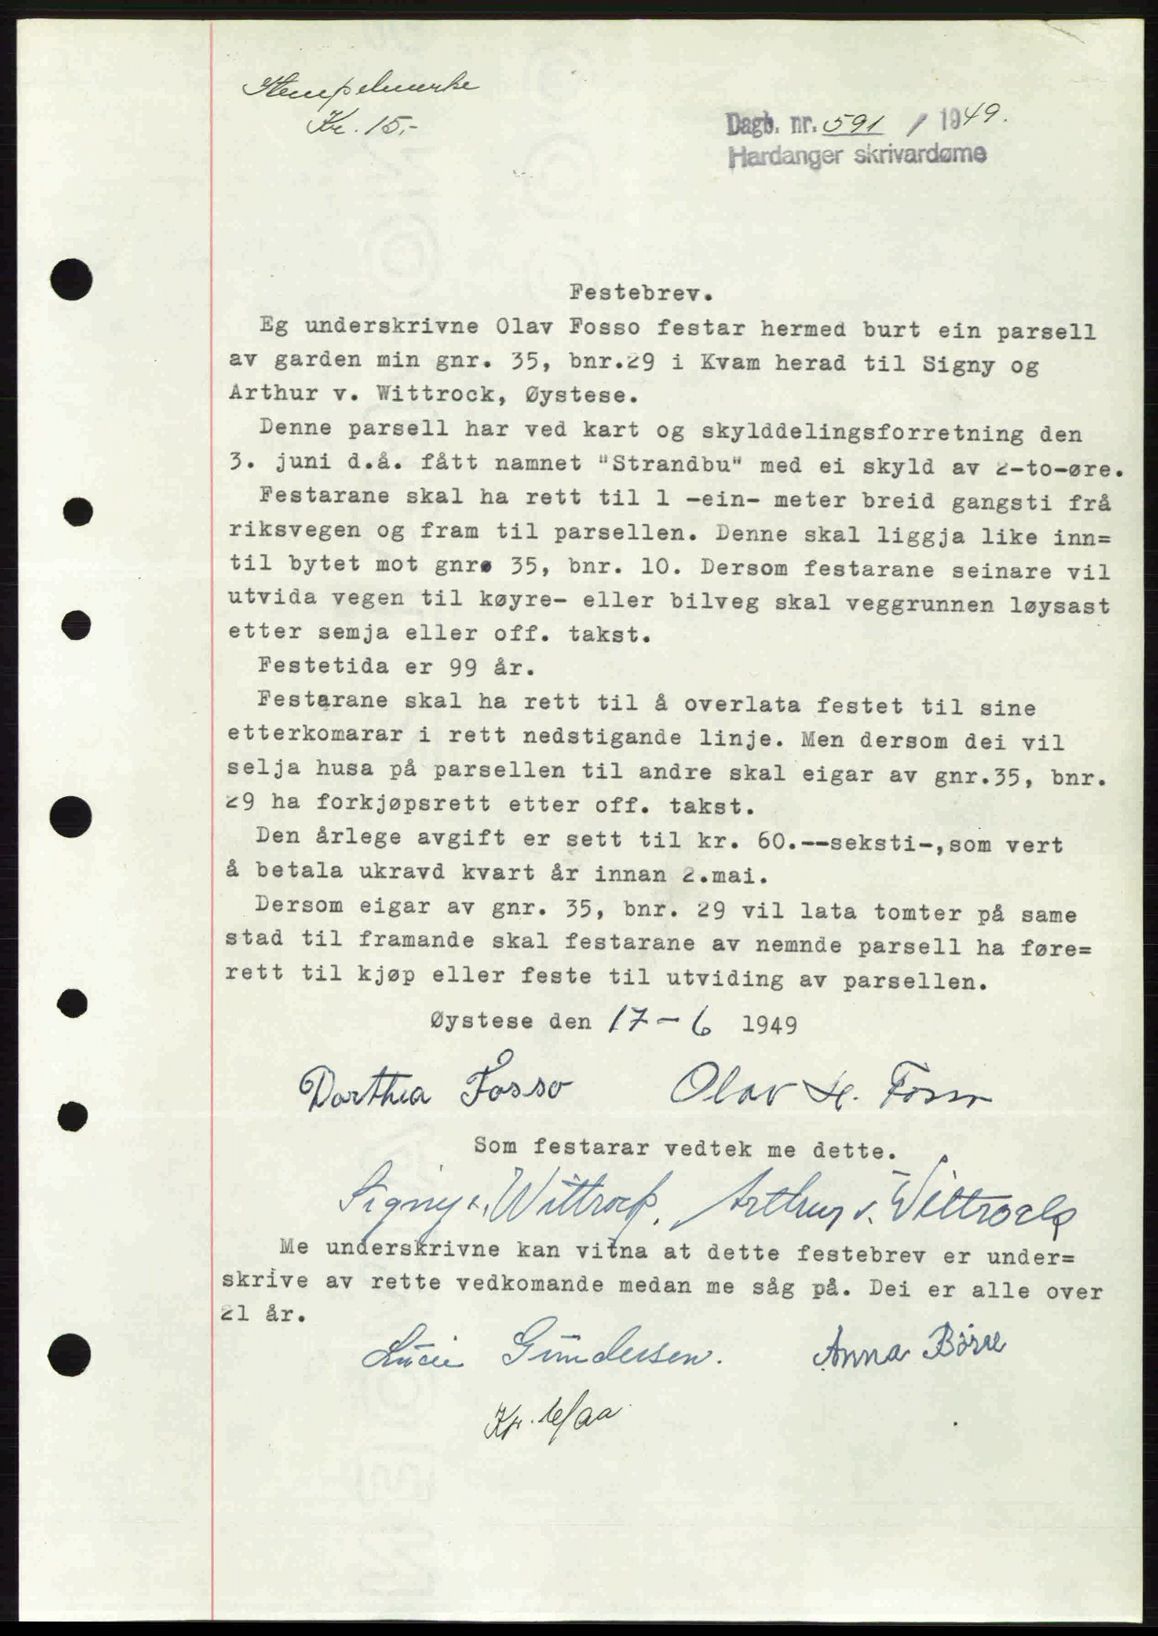 Stempelmerke
Kr. 15,-
Dagb. nr. 591 / 1949.
Hardanger skrivardøme
Festebrev.
Eg underskrivne Olav Fosso festar hermed burt ein parsell
av garden min gnr. 35, bnr.29 i Kvam herad til Signy og
Arthur v. Wittrock, Øystese.
Denne parsell har ved kart og skylddelingsforretning den
3. juni d.å. fått namnet "Strandbu" med ei skyld av 2-to-øre.
Festarane skal ha rett til 1 -ein- meter breid gangsti frå
riksvegen og fram til parsellen. Denne skal liggja like inn=
til bytet mot gnr. 35, bnr. 10. Dersom festarane seinare vil
utvida vegen til køyre- eller bilveg skal veggrunnen løysast
etter semja eller off. takst.
Festetida er 99 år.
Festarane skal ha rett til å overlata festet til sine
etterkomarar i rett nedstigande linje. Men dersom dei vil
selja husa på parsellen til andre skal eigar av gnr.35, bnr.
29 ha forkjøpsrett etter off. takst.
Den årlege avgift er sett til kr. 60.--seksti-,som vert
å betala ukravd kvart år innan 2.mai.
Dersom eigar av gnr. 35, bnr. 29 vil lata tomter på same
stad til framande skal festarane av nemnde parsell ha føre=
rett til kjøp eller feste til utviding av parsellen.
Øystese den 17-6 1949
Dorthea Fosso Olav H. Fosso
Som festarar vedtek me dette.
Signy v. Wittrock. Arthur v. Wittrock
Me underskrivne kan vitna at dette festebrev er under=
skrive av rette vedkomande medan me såg på. Dei er alle over
21 år.
Lucie Gundersen. Anna Børve